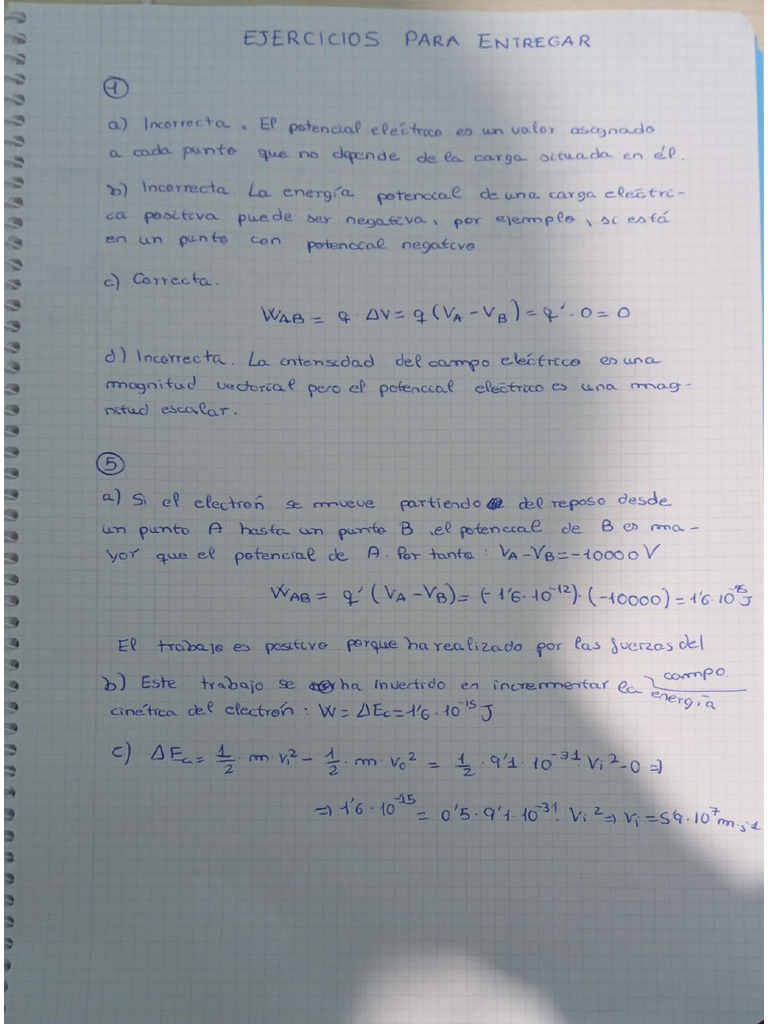 EJERCICIOS PARA ENTREGAR
1
a) Incorrecta. El potencial eléctrico es un valor asignado
a cada punto que no depende de la carga situada en él.
b) Incorrecta. La energía potencial de una carga eléctri-
ca positiva puede ser negativa, por ejemplo, si está
en un punto con potencial negativo
c) Correcta.
W_AB = q · ΔV = q (V_A - V_B) = q' · 0 = 0
d) Incorrecta. La intensidad del campo eléctrico es una
magnitud vectorial pero el potencial eléctrico es una mag-
nitud escalar.
5
a) Si el electrón se mueve partiendo del reposo desde
un punto A hasta un punto B, el potencial de B es ma-
yor que el potencial de A. Por tanto: V_A - V_B = -10000 V
W_AB = q' (V_A - V_B) = (-1'6 · 10^-12) · (-10000) = 1'6 · 10^-15 J
El trabajo es positivo porque ha realizado por las fuerzas del campo.
b) Este trabajo se ha invertido en incrementar la energía
cinética del electrón: W = ΔEc = 1'6 · 10^-15 J
c) ΔEc = 1/2 · m · v_i^2 - 1/2 · m · v_0^2 = 1/2 · 9'1 · 10^-31 · v_i^2 - 0 ⇒
⇒ 1'6 · 10^-15 = 0'5 · 9'1 · 10^-31 · v_i^2 ⇒ v_i = 59 · 10^7 m · s^-1